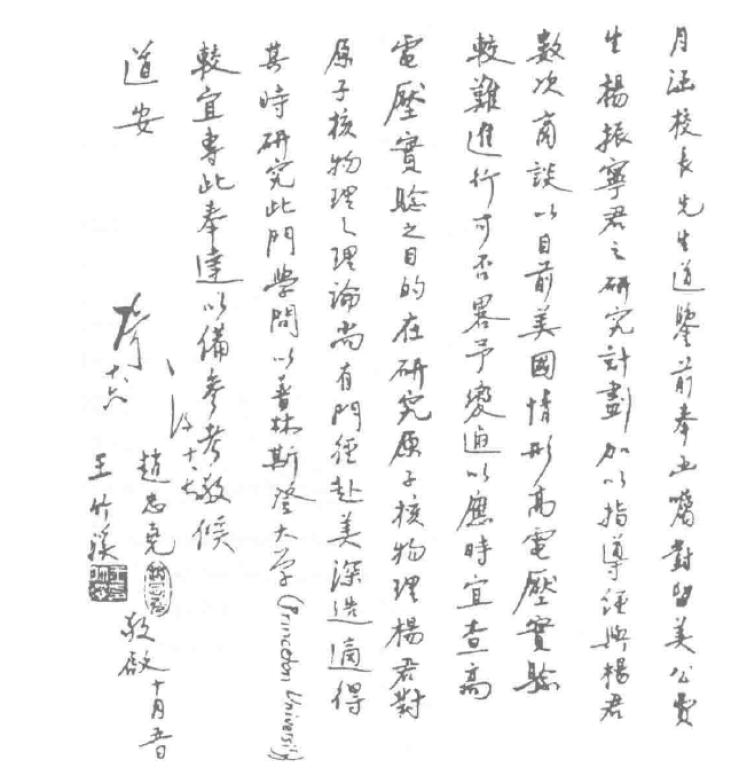 月涵校長先生道鑒前奉函囑對留美公費
生楊振寧君之研究計劃加以指導經與楊君
數次商談以目前美國情形高電壓實驗
較難進行可否畧予變通以應時宜查高
電壓實驗之目的在研究原子核物理楊君對
原子核物理之理論尚有門徑赴美深造適得
其時研究此門學問以普林斯登大學(Princeton University)
較宜專此奉達以備參考敬候
道安
趙忠堯
王竹溪
敬啟 十月五日